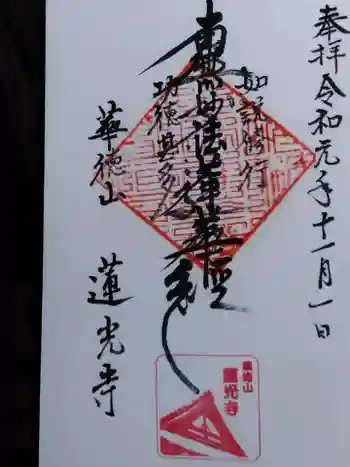 奉拝令和元年十一月一日
如説修行
南無妙法蓮華経
功徳甚多
華徳山
蓮光寺
蓮光寺